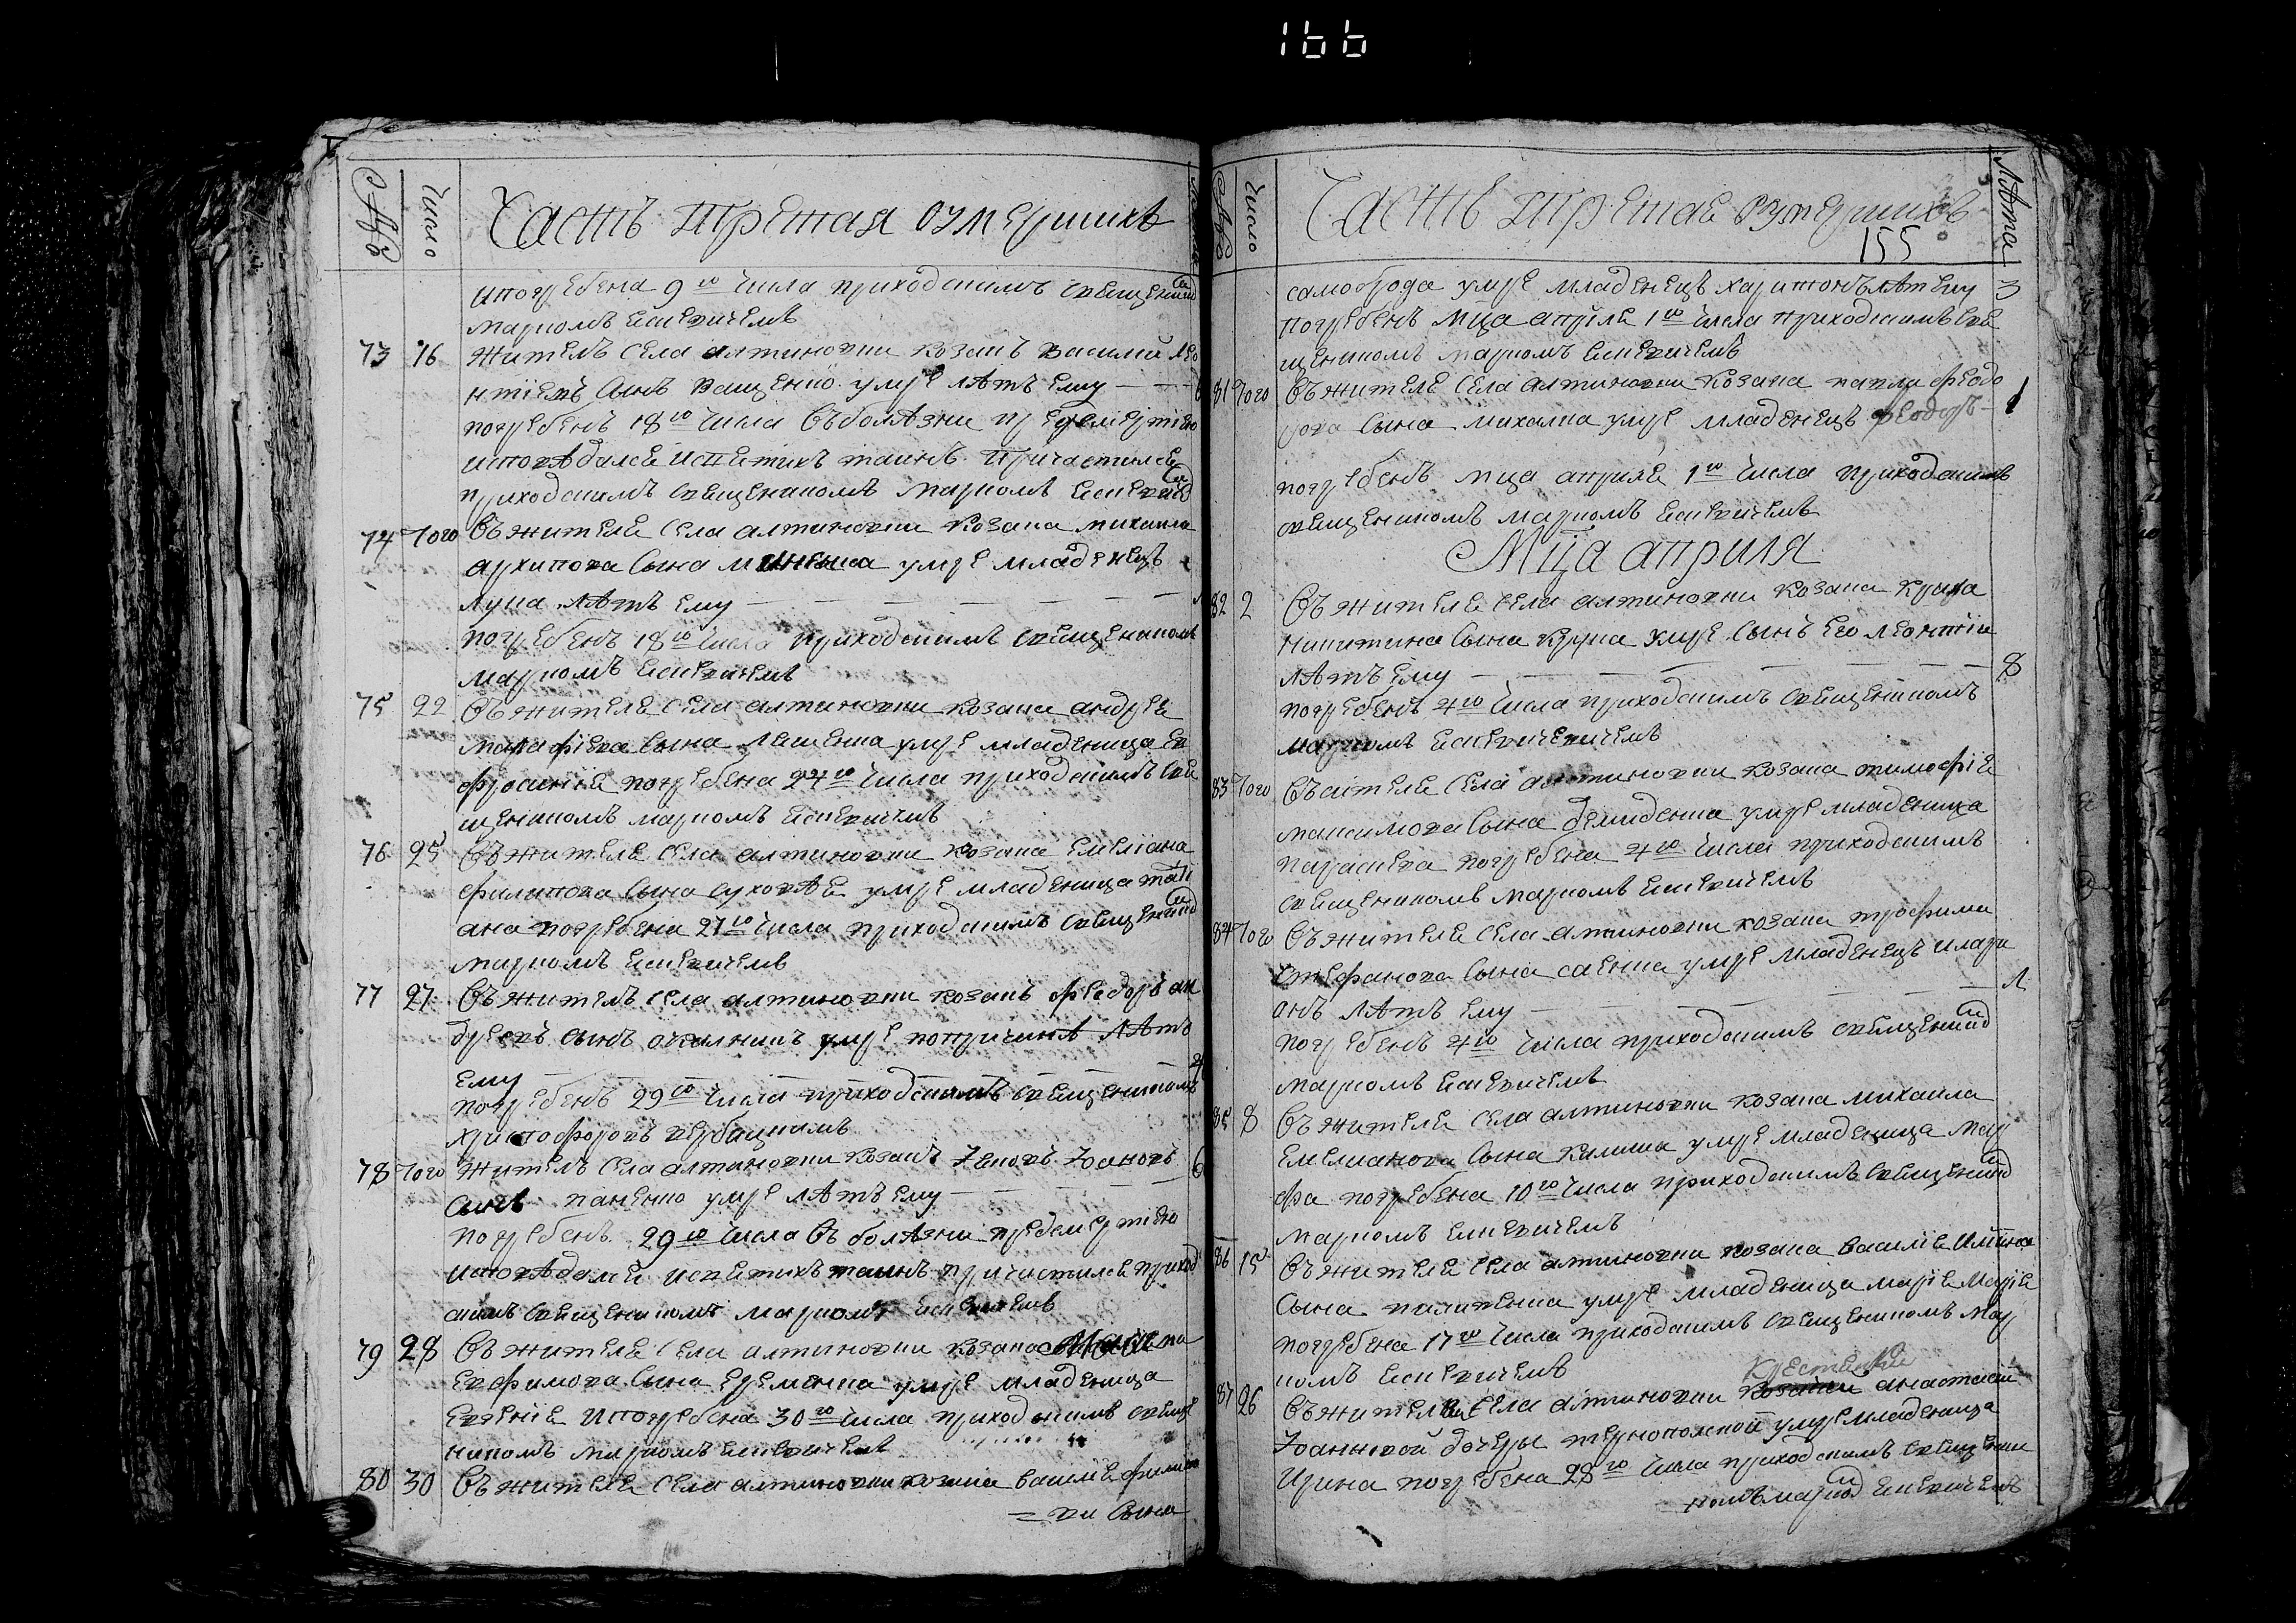 166
Число
Часть третая оумершихъ
и погребена 9го числа приходскимъ священнико
Маркомъ Ескевичемъ
73 16 житель села алтиновки козакъ василий лео
нтіевъ сынъ ващенко умре лѣтъ ему
погребенъ 18го числа въ болѣзни предсмертною
исповѣдался и святихъ таинъ причастился
приходскимъ священикомъ Маркомъ Ескевиче
74 того Въ жителя села алтиновки козака михаила
архипова сына умре младенецъ
лука лѣтъ ему
погребенъ 18го числа приходскимъ священикомъ
Маркомъ Ескевичемъ
75 22 Въ жителя села алтиновки козака андрея
сына умре младеница ев
фросиніе погребена 24го числа приходскимъ свя
щеникомъ маркомъ Ескевичемъ
76 25 Въ жителя села алтиновки козака Емеліана
филипова сына суховѣе умре младеница таті
ана погребена 27го числа приходскимъ священико
Маркомъ Ескевичемъ
77 27 Въ жителъ села алтиновки козакъ феодоръ ан
дреевъ сынъ умре лѣтъ
ему
погребенъ 29го числа приходскимъ священикомъ
христофоромъ вербицкимъ
78 того житель села алтиновки козакъ Іоановъ
сынъ паненко умре лѣтъ ему
погребенъ 29го числа въ болѣзни предсмертною
исповѣдался и святихъ таинъ причастился приход
скимъ священикомъ маркомъ Ескевичемъ
79 28 Въ жителя села алтиновки козака
Евфимова сына Еременка умре младеница
Евгеніе и погребена 30го числа приходскимъ свяще
никомъ маркомъ Ескевичемъ
80 30 Въ жителя села алтиновки козака василіе филипо
= ви сына
Число
Часть третае оумершихъ
155
Лѣта
самоброда умре младенецъ харитонъ лѣт ему 3
погребенъ Мца апріле 1го числа приходскимъ свя
щеникомъ Маркомъ Ескевичемъ
81 того Въ жителя села алтиновки козака павла феодо
рова сына михалка умре младенецъ феодоръ 1
погребенъ мца апріле 1го числа приходскимъ
священикомъ маркомъ Ескевичемъ
Мца априля
82 2 Въ жителя села алтиновки козака
никитина сына умре сынъ его леонтій
лѣтъ ему 8
погребенъ 4го числа приходскимъ священикомъ
маркомъ Ескевичевичемъ
83 того Въ сителя села алтиновки козака тимофіе
максимова сына демиденка умре младеница
параскева погребена 4го числа приходскимъ
священикомъ маркомъ Ескевичемъ
84 того Въ жителя села алтиновки козака трофима
стефанова сына саенка умре младенецъ илари
онъ лѣтъ ему 1
погребенъ 4го числа приходскимъ священико
маркомъ Ескевичемъ
85 8 Въ жителя села алтиновки козака михаила
Емелианова сына калиша умре младеница мар
фа погребена 10го числа приходскимъ священико
маркомъ Ескевичемъ
86 15 Въ жителя села алтиновки козака василіе
сына умре младеница маріе маріе
погребена 17го числа приходскимъ священикомъ мар
комъ Ескевичемъ
87 26 Въ жителки села алтиновки анастасіи
Іоанновой дочеры тернополской умре младеница
Ирина погребена 28го числа приходскимъ священи
комъ марко Ескевичемъ